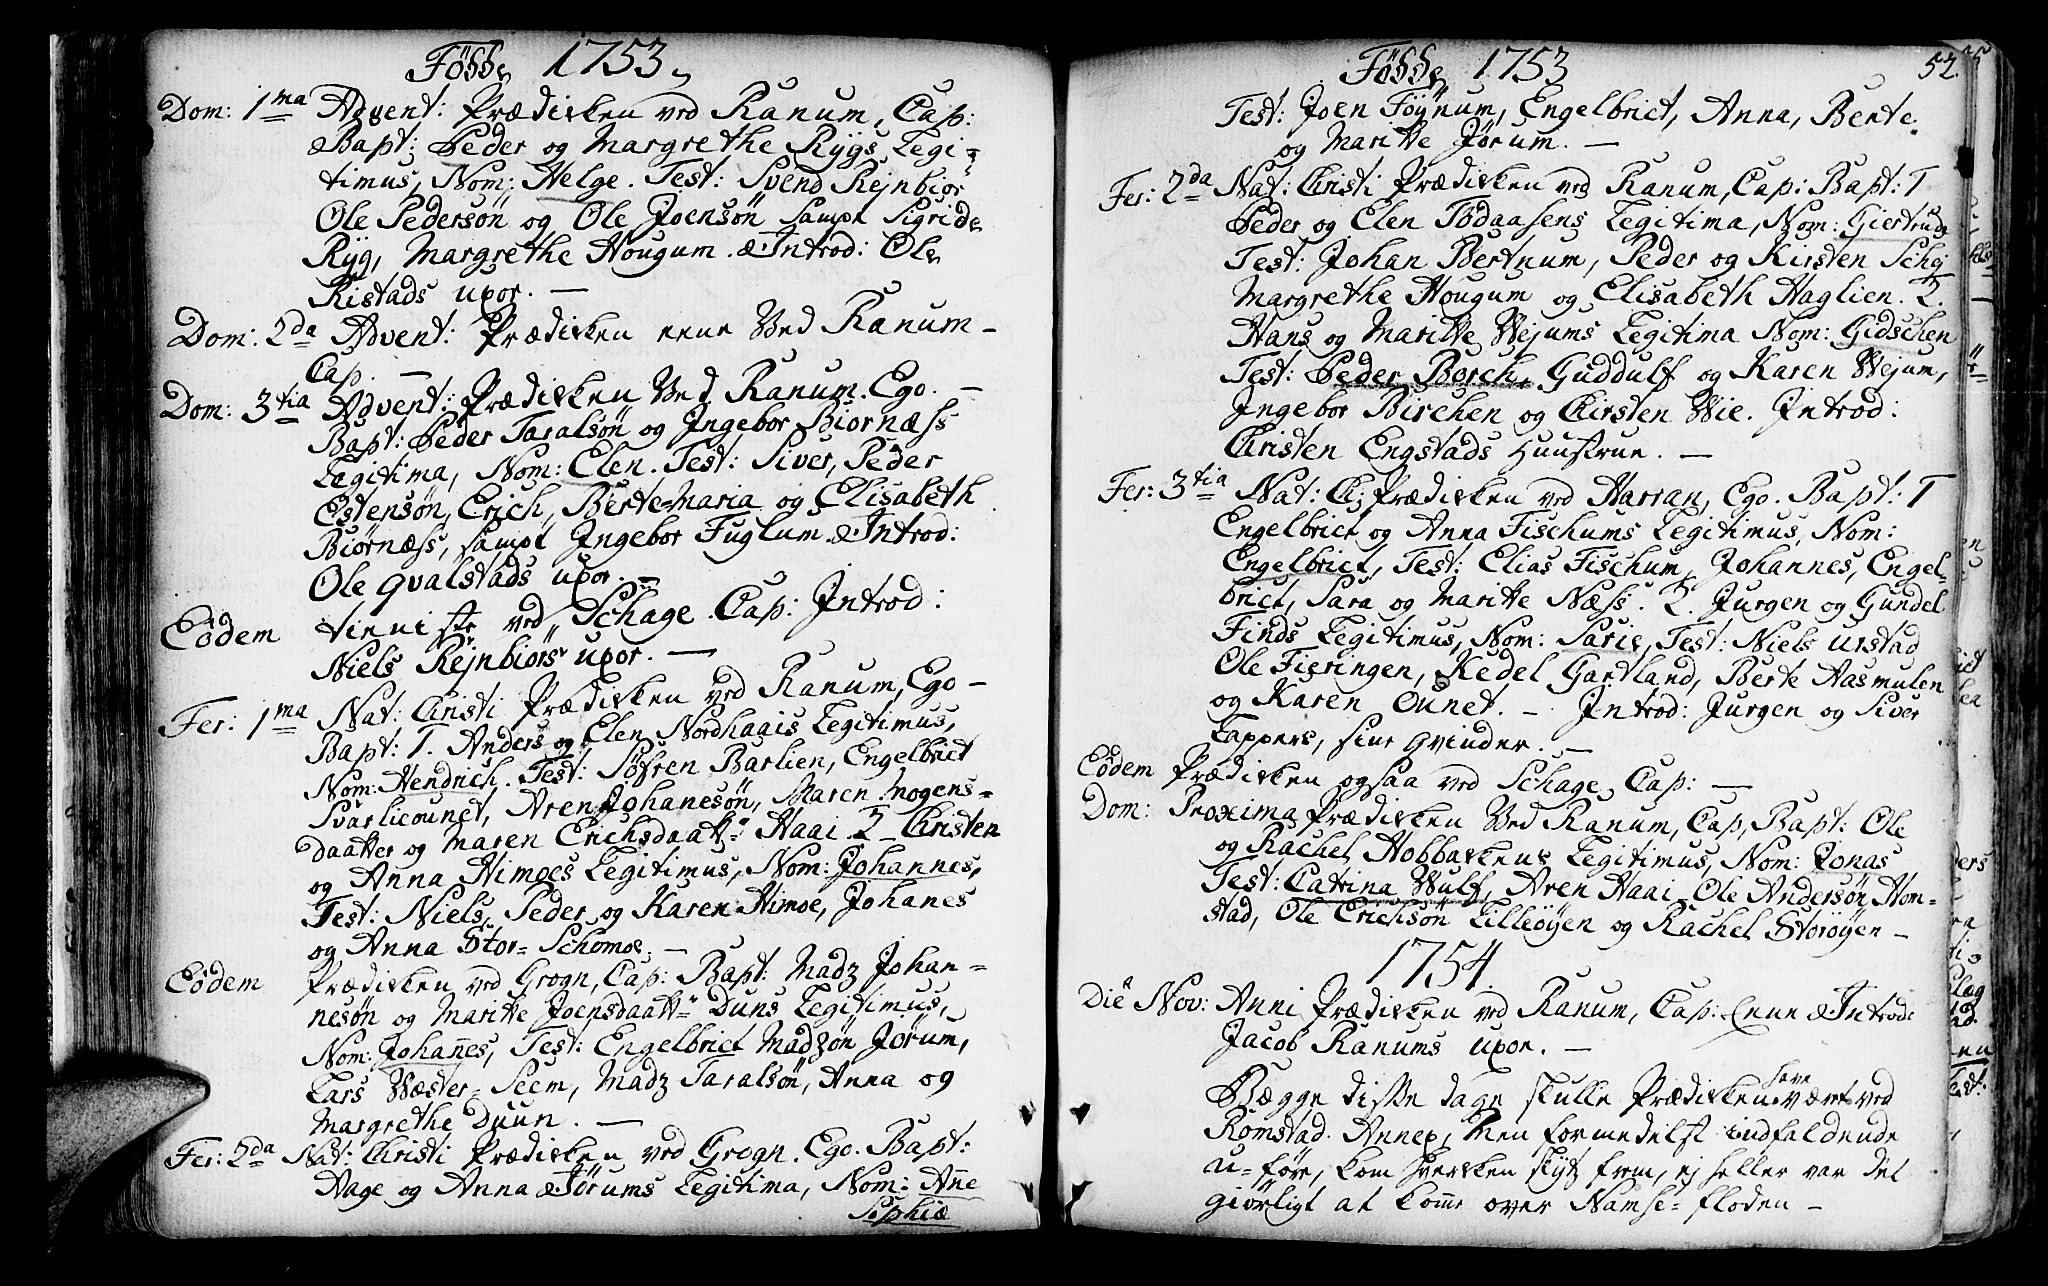 Födde 1753
Dom: 1ma Advent: Prædiken ved Ranum, Cap:
Bapt: Peder og Margrethe Rygs Legi-
timus, Nom: Helge. Test: Svend Rejnbiör
Ole Pedersön og Ole Joensön sampt Sigride
Ryg, Margrethe Hougum. Introd: Ole
Ristads uxor. —
Dom: 2da Advent: Prædiken Ved Ranum –
Cap. —
Dom: 3tia Advent: Prædiken Ved Ranum. Ego. —
Bapt: Peder Taralsön og Ingebor Biornæss
Legitima, Nom: Elen. Test: Siver, Peder
Estensön, Erich, Berte-Maria og Elisabeth
Biörnæss, sampt Ingebor Fuglum. Introd:
Ole Qvalstads uxor. —
Eödem tieniste ved Schage. Cap: Introd:
Niels Rejnbiörs uxor. —
Fer: 1ma Nat: Christi Prædiken ved Ranum, Ego –
Bapt: 1. Anders og Elen Nordhaais Legitimus,
Nom: Hendrich. Test: Söfren Barlien, Engelbrict
Svarlieounet, Aren Johanesön, Maren Mogens-
daatter og Maren Erichsdaatt: Haai 2 Christen
og Anna Himoes Legitimus, Nom: Johannes,
Test: Niels, Peder og Karen Himoe, Johanes
og Anna Stor-Schomoe. —
Eödem Prædiken ved Grogn, Cap: Bapt: Madz Johan-
nesön og Maritte Joensdaatt: Duns Legitimus,
Nom: Johañes, Test: Engelbrict Madzön Jörum,
Lars Wæster-Seem, Madz Taralsön, Anna og
Margrethe Duun. —
Fer: 2da Nat: Christi Prædiken ved Grogn. Ego. Bapt:
Aage og Anna Jörums Legitima, Nom: Añe
Sophiæ
Födde 1753 52.
Test: Joen Föÿnum, Engelbrict, Anna, Berte
og Maritte Jörum. —
Fer: 2da Nat: Christi Prædiken ved Ranum, Cap: Bapt: 1
Peder og Elen Tödaasens Legitima, Nom: Giertrude
Test: Johan Bertnum, Peder og Kirsten Schej
Margrethe Hougum og Elisabeth Haglien. 2.
Hans og Maritte Wejums Legitima Nom: Gidschen
Test: Peder Borch, Guddulf og Karen Wejum,
Ingebor Birchen og Chirsten Wie. Introd:
Christen Engstads Huustrue. —
Fer: 3tia Nat: Ch: Prædiken ved Harran, Ego. Bapt: 1
Engelbrict og Anna Fischums Legitimus, Nom:
Engelbrict, Test: Elias Fischum, Johannes, Engel-
brict, Sara og Maritte Næss. 2. Jurgen og Gundel
Finds Legitimus, Nom: Sarie, Test: Niels Urstad
Ole Fieringen, Kedel Gartland, Berte Aasmulen
og Karen Ounet. — Introd: Jurgen og Siver
Lappers, sine Qvinder. —
Eödem Prædiken ogsaa ved Schage, Cap: —
Dom: Proxima Prædiken Ved Ranum, Cap, Bapt: Ole
og Rachel Hobbackens Legitimus, Nom: Jonas
Test: Catrina Wulf, Aren Haai, Ole Andersön Hom-
stad, Ole Erichsön Lilleöyen og Rachel Storöyen –
1754.
Die Nov: Anni Prædiken ved Ranum, Cap: Introd:
Jacob Ranums uxor. —
Begge disse dage skulle Prædiken have været ved
Romstad. Annex, Men formedelst indfaldende
u-före, kom hverken skyts frem, ej heller var det
giörligt at kom̃e over Namse-floden –